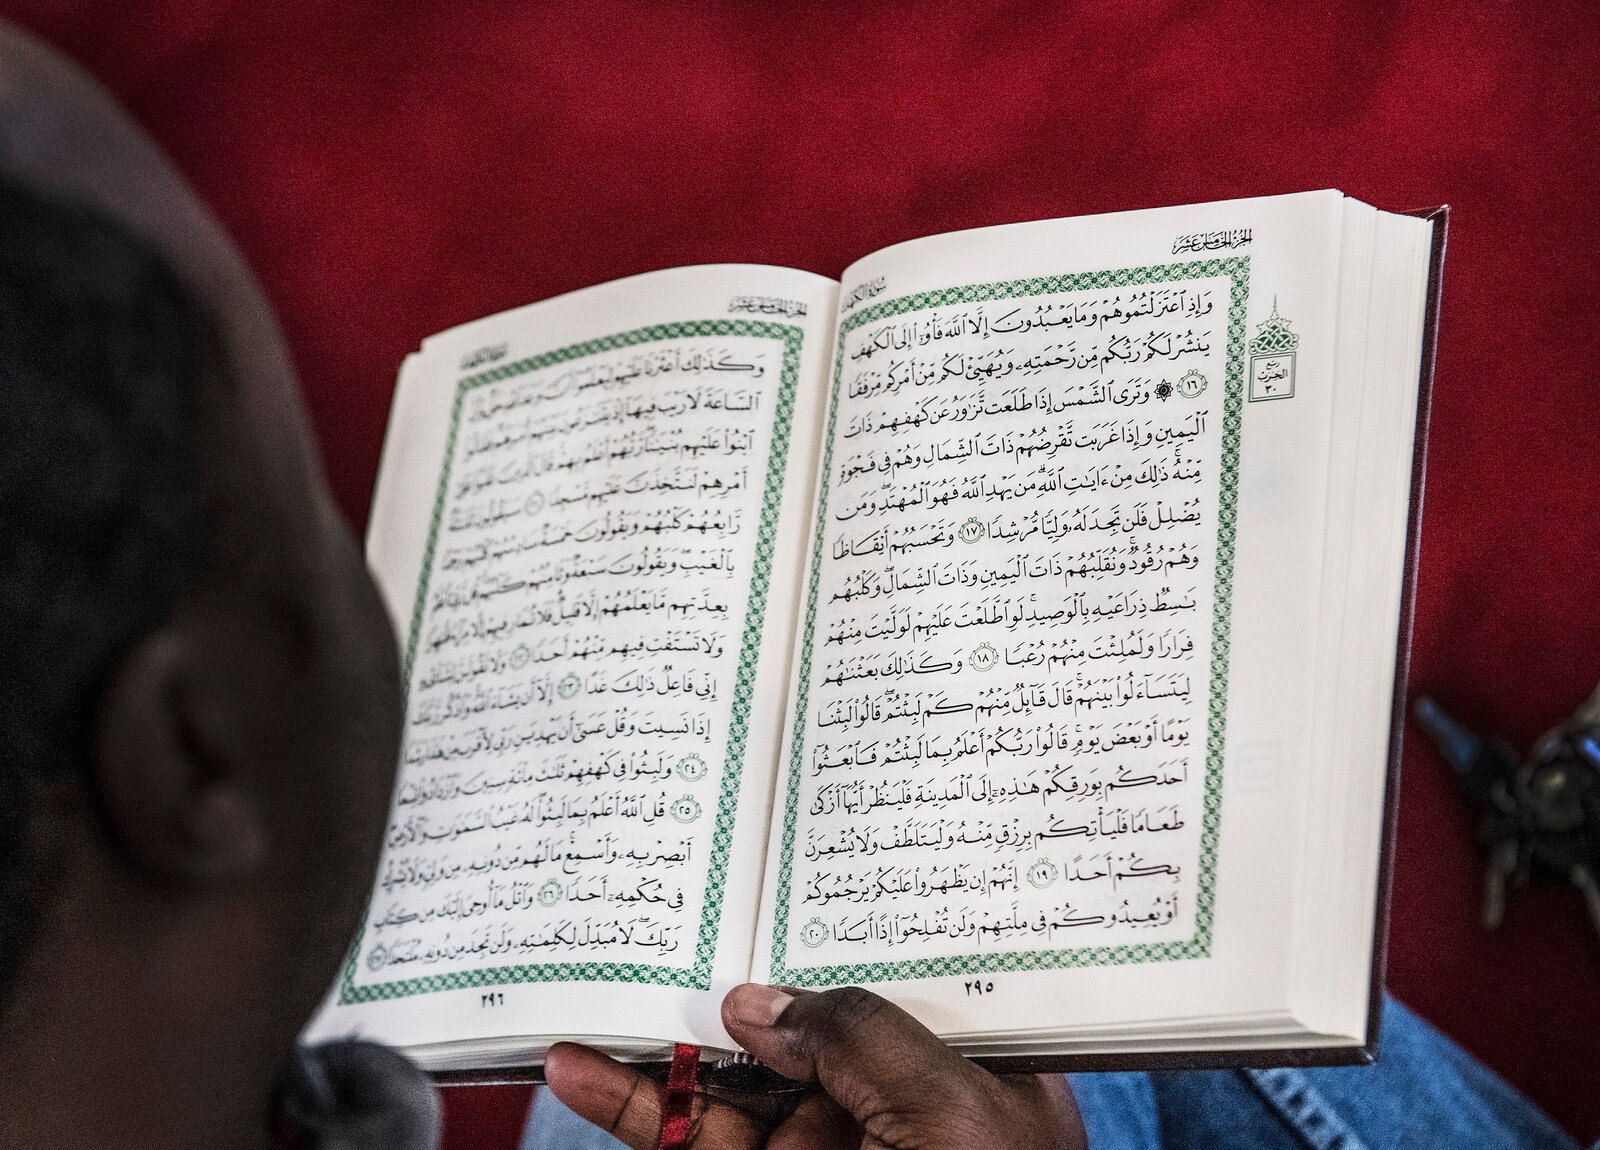 الجزء الخامس عشر
سورة الكهف
وَإِذِ ٱعْتَزَلْتُمُوهُمْ وَمَا يَعْبُدُونَ إِلَّا ٱللَّهَ فَأْوُۥٓا۟ إِلَى ٱلْكَهْفِ
يَنشُرْ لَكُمْ رَبُّكُم مِّن رَّحْمَتِهِۦ وَيُهَيِّئْ لَكُم مِّنْ أَمْرِكُم مِّرْفَقًا
١٦ ۞ وَتَرَى ٱلشَّمْسَ إِذَا طَلَعَت تَّزَٰوَرُ عَن كَهْفِهِمْ ذَاتَ
ٱلْيَمِينِ وَإِذَا غَرَبَت تَّقْرِضُهُمْ ذَاتَ ٱلشِّمَالِ وَهُمْ فِى فَجْوَةٍ
مِّنْهُ ۚ ذَٰلِكَ مِنْ ءَايَٰتِ ٱللَّهِ ۗ مَن يَهْدِ ٱللَّهُ فَهُوَ ٱلْمُهْتَدِ ۖ وَمَن
يُضْلِلْ فَلَن تَجِدَ لَهُۥ وَلِيًّا مُّرْشِدًا ١٧ وَتَحْسَبُهُمْ أَيْقَاظًا
وَهُمْ رُقُودٌ ۚ وَنُقَلِّبُهُمْ ذَاتَ ٱلْيَمِينِ وَذَاتَ ٱلشِّمَالِ ۖ وَكَلْبُهُم
بَٰسِطٌ ذِرَاعَيْهِ بِٱلْوَصِيدِ ۚ لَوِ ٱطَّلَعْتَ عَلَيْهِمْ لَوَلَّيْتَ مِنْهُمْ
فِرَارًا وَلَمُلِئْتَ مِنْهُمْ رُعْبًا ١٨ وَكَذَٰلِكَ بَعَثْنَٰهُمْ
لِيَتَسَآءَلُوا۟ بَيْنَهُمْ ۚ قَالَ قَآئِلٌ مِّنْهُمْ كَمْ لَبِثْتُمْ ۖ قَالُوا۟ لَبِثْنَا
يَوْمًا أَوْ بَعْضَ يَوْمٍ ۚ قَالُوا۟ رَبُّكُمْ أَعْلَمُ بِمَا لَبِثْتُمْ فَٱبْعَثُوٓا۟
أَحَدَكُم بِوَرِقِكُمْ هَٰذِهِۦٓ إِلَى ٱلْمَدِينَةِ فَلْيَنظُرْ أَيُّهَآ أَزْكَىٰ
طَعَامًا فَلْيَأْتِكُم بِرِزْقٍ مِّنْهُ وَلْيَتَلَطَّفْ وَلَا يُشْعِرَنَّ
بِكُمْ أَحَدًا ١٩ إِنَّهُمْ إِن يَظْهَرُوا۟ عَلَيْكُمْ يَرْجُمُوكُمْ
أَوْ يُعِيدُوكُمْ فِى مِلَّتِهِمْ وَلَن تُفْلِحُوٓا۟ إِذًا أَبَدًا ٢٠
ربع
الحزب
٣٠
٢٩٥
الجزء الخامس عشر
وَكَذَٰلِكَ أَعْثَرْنَا عَلَيْهِمْ لِيَعْلَمُوٓا۟
ٱلسَّاعَةَ لَا رَيْبَ فِيهَآ إِذْ
ٱبْنُوا۟ عَلَيْهِم بُنْيَٰنًا ۖ رَّبُّهُمْ أَعْلَمُ بِهِمْ ۚ قَالَ
أَمْرِهِمْ لَنَتَّخِذَنَّ عَلَيْهِم مَّسْجِدًا ٢١ سَيَقُولُونَ
رَّابِعُهُمْ كَلْبُهُمْ وَيَقُولُونَ خَمْسَةٌ
بِٱلْغَيْبِ ۖ وَيَقُولُونَ سَبْعَةٌ
بِعِدَّتِهِم مَّا يَعْلَمُهُمْ إِلَّا قَلِيلٌ ۗ فَلَا تُمَارِ فِيهِمْ
وَلَا تَسْتَفْتِ فِيهِم مِّنْهُمْ أَحَدًا ٢٢ وَلَا
إِنِّى فَاعِلٌ ذَٰلِكَ غَدًا ٢٣ إِلَّآ أَن يَشَآءَ ٱللَّهُ ۚ وَٱذْكُر رَّبَّكَ
إِذَا نَسِيتَ وَقُلْ عَسَىٰٓ أَن يَهْدِيَنِ رَبِّى لِأَقْرَبَ مِنْ هَٰذَا رَشَدًا
٢٤ وَلَبِثُوا۟ فِى كَهْفِهِمْ ثَلَٰثَ مِا۟ئَةٍ سِنِينَ
٢٥ قُلِ ٱللَّهُ أَعْلَمُ بِمَا لَبِثُوا۟ ۖ لَهُۥ غَيْبُ ٱلسَّمَٰوَٰتِ وَٱلْأَرْضِ ۖ
أَبْصِرْ بِهِۦ وَأَسْمِعْ ۚ مَا لَهُم مِّن دُونِهِۦ مِن وَلِىٍّ وَلَا يُشْرِكُ
فِى حُكْمِهِۦٓ أَحَدًا ٢٦ وَٱتْلُ مَآ أُوحِىَ إِلَيْكَ مِن كِتَابِ
رَبِّكَ ۖ لَا مُبَدِّلَ لِكَلِمَٰتِهِۦ وَلَن تَجِدَ مِن دُونِهِۦ مُلْتَحَدًا
٢٩٦